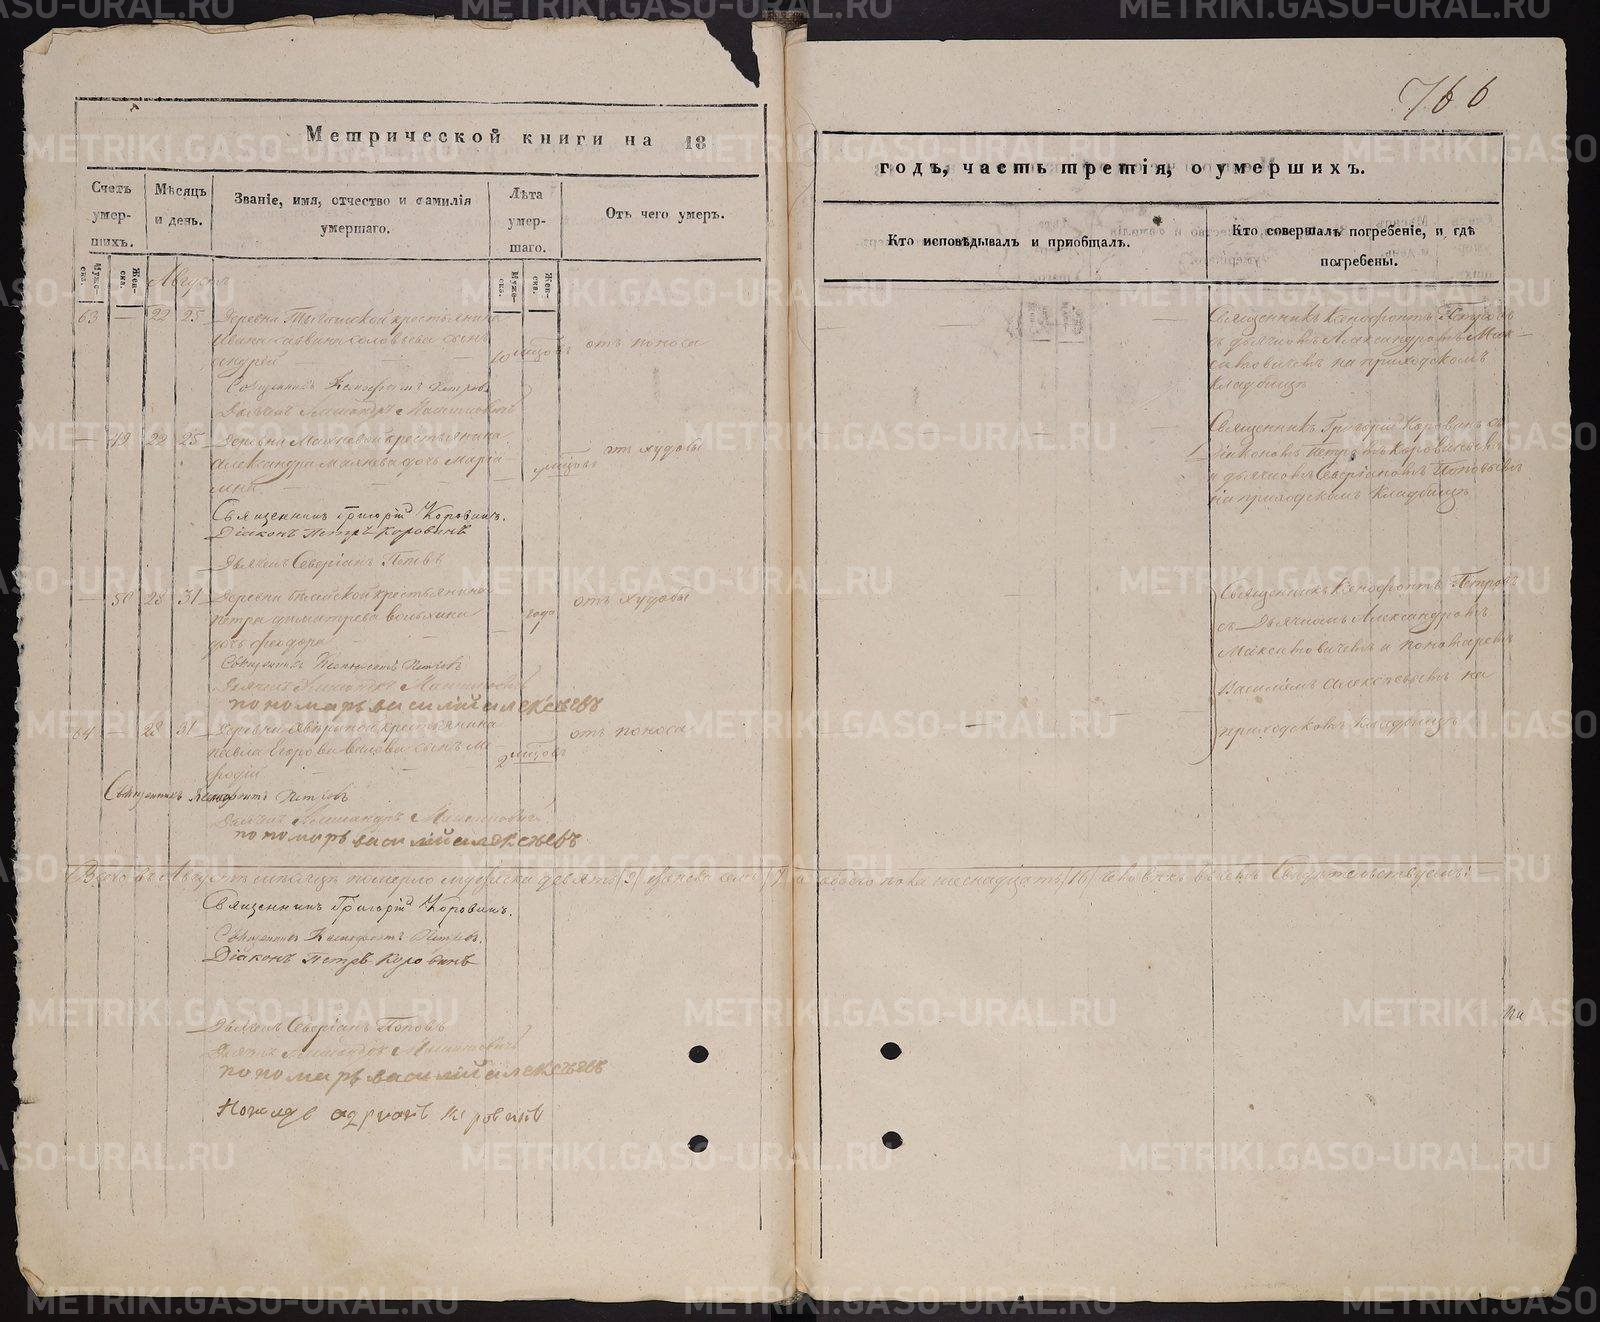 766
Метрической книги на 18
годъ, часть третія, о умершихъ.
Счетъ умер-шихъ.
Мѣсяцъ и день.
Званіе, имя, отчество и фамилія умершаго.
Лѣта умер-шаго.
Отъ чего умеръ.
Кто исповѣдывалъ и приобщалъ.
Кто совершалъ погребеніе, и гдѣ погребены.
Муже-ска.
Жен-ска.
Муже-ска.
Жен-ска.
Августъ
63 — 22 25 Деревни крестьянина
Ивана Соловьева сынъ
Андрей
мѣсяцовъ
отъ поноса
Священникъ Ксенофонтъ Петровъ
съ дьячкомъ Александромъ Мак-
симовичемъ на приходскомъ
кладбищѣ
Священникъ Ксенофонтъ Петровъ
Дьячекъ Александръ Максимовичъ
— 49 22 25 Деревни крестьянина
Александра дочь Марія
мѣсяцовъ
отъ худобы
Священникъ Григорій Коровинъ съ
діакономъ Петромъ Коровинымъ
и дьячкомъ Северіаномъ Поповымъ
на приходскомъ кладбищѣ
Священникъ Григорій Коровинъ.
Діаконъ Петръ Коровинъ
Дьячекъ Северіанъ Поповъ
— 50 28 31 Деревни крестьянина
Петра Димитрева
дочь Феодора
года
отъ худобы
Священникъ Ксенофонтъ Петровъ
съ Дьячкомъ Александромъ
Максимовичемъ и пономаремъ
Василіемъ Алексѣевымъ на
приходскомъ кладбищѣ
Священникъ Ксенофонтъ Петровъ
Дьячекъ Александръ Максимовичъ
пономарь василій алексѣевъ
64 — 28 31 Деревни крестьянина
Павла Егорова сынъ Ме-
фодій
2 мѣсяцовъ
отъ поноса
Священникъ Ксенофонтъ Петровъ
Дьячекъ Александръ Максимовичъ
пономарь василій алексѣевъ
Всего въ Августѣ мѣсяцѣ померло мужеска девять /9/ женска семь /7/ а обоего пола шеснадцать /16/ человѣкъ въ чемъ Свидѣтельствуемъ:
Священникъ Григорій Коровинъ.
Священникъ Ксенофонтъ Петровъ.
Діаконъ Петръ Коровинъ
Дьячекъ Северіанъ Поповъ
Дьячекъ Александръ Максимовичъ
пономарь василій алексѣевъ
METRIKI.GASO-URAL.RU